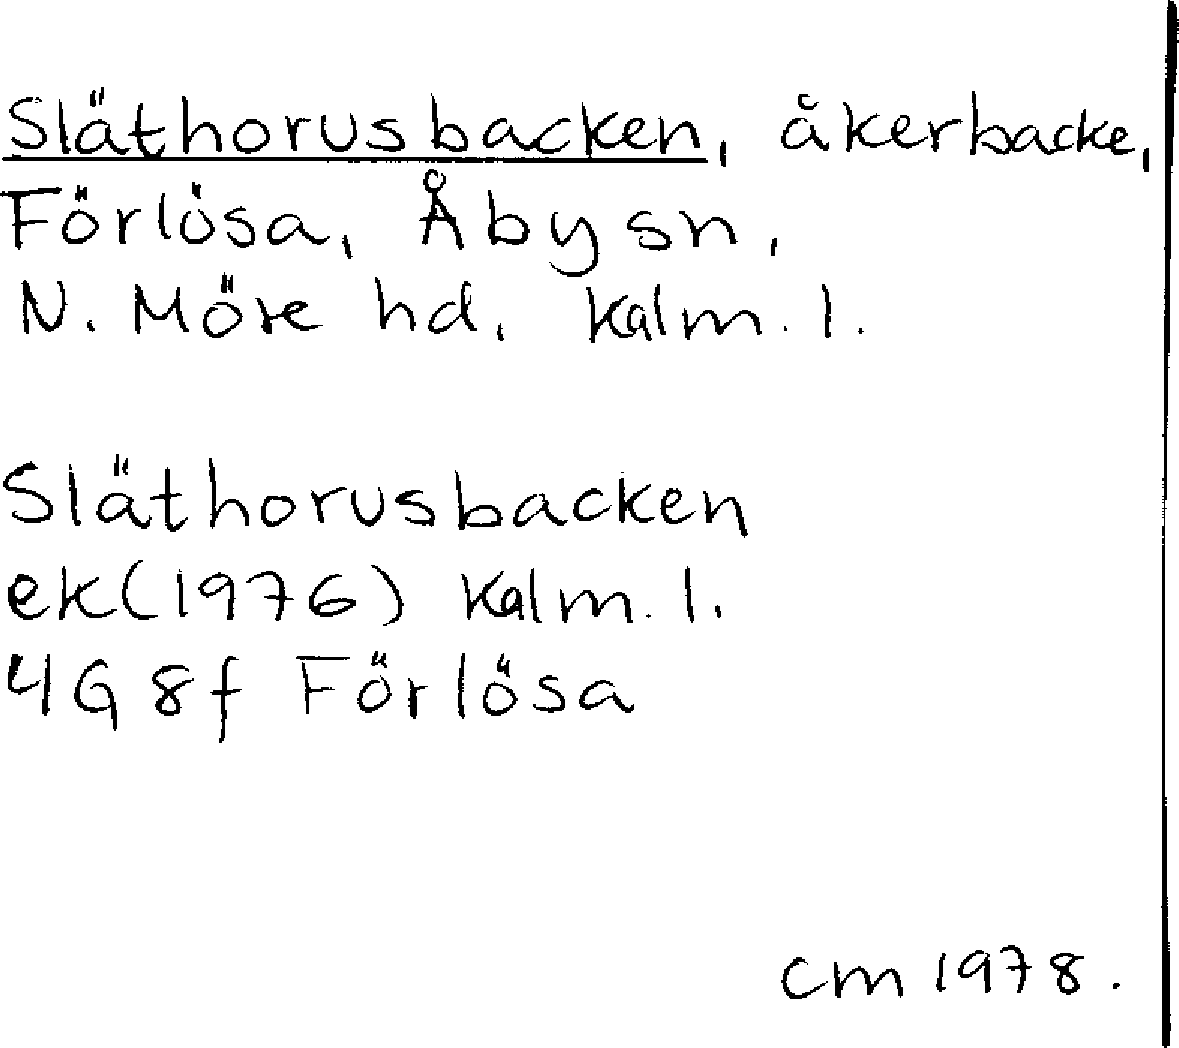 Släthorusbacken, åkerbacke,
Förlösa, Åby sn,
N. Möre hd, Kalm. l.
Släthorusbacken
ek(1976) Kalm. l.
4G 8f Förlösa
cm 1978.